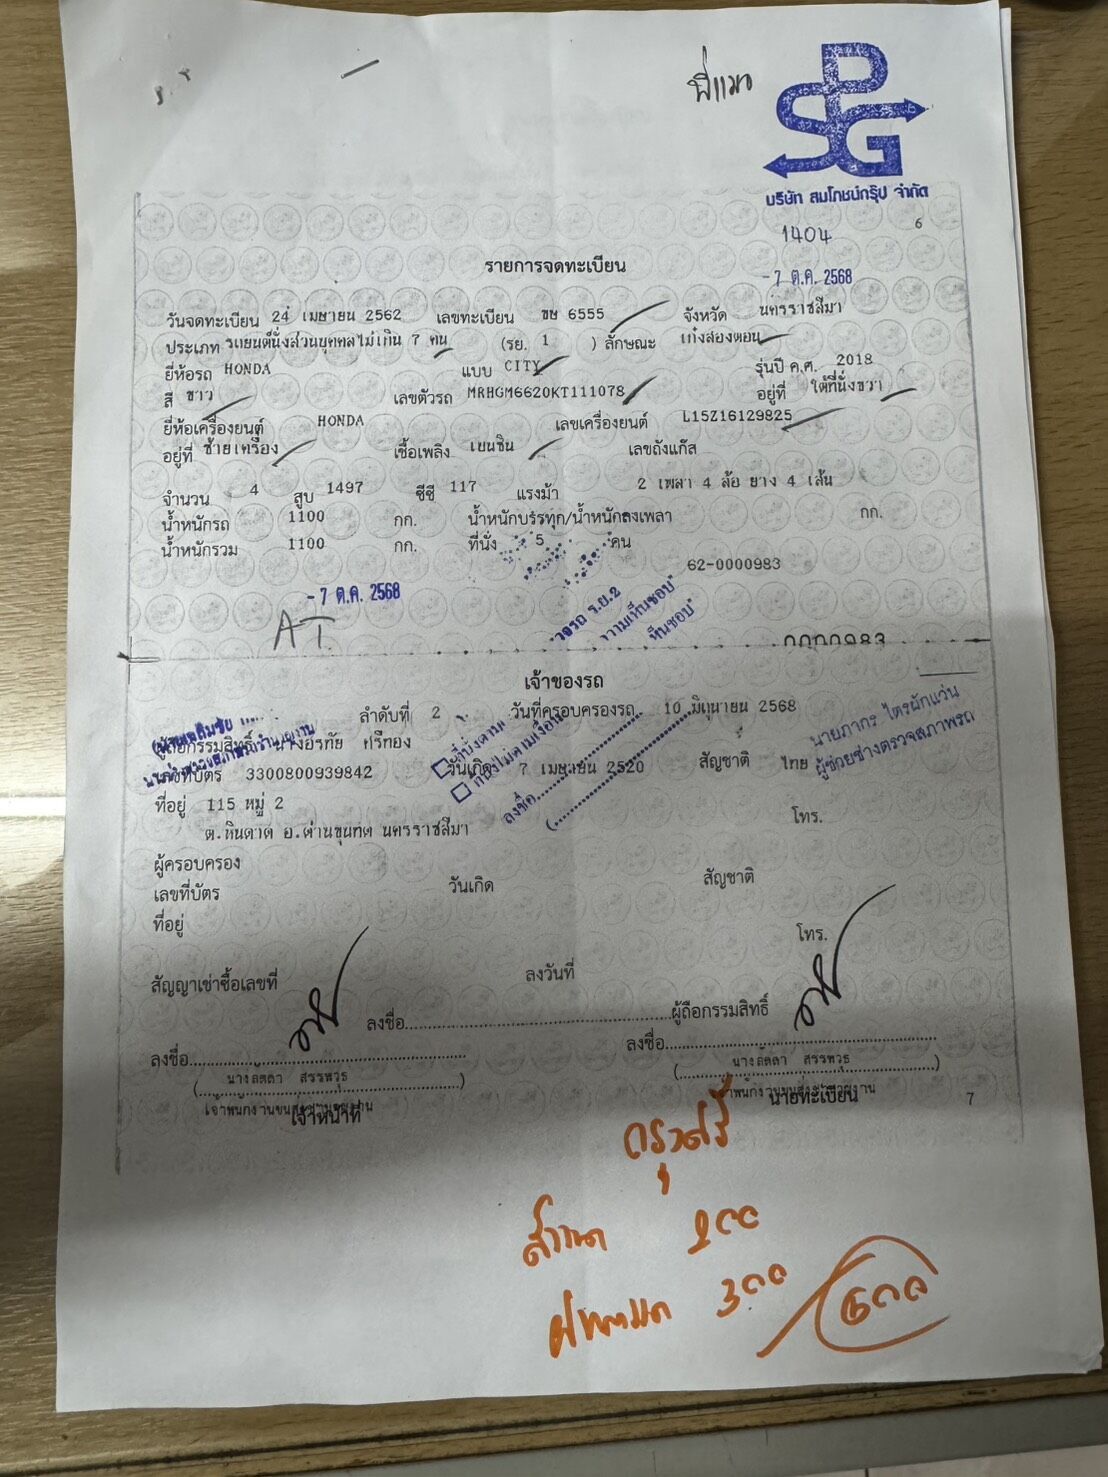 พี่แมว
SPG
บริษัท สมโภชน์กรุ๊ป จำกัด
1404
6
รายการจดทะเบียน
- 7 ต.ค. 2568
วันจดทะเบียน 24 เมษายน 2562 เลขทะเบียน ขษ 6555 จังหวัด นครราชสีมา
ประเภท รถยนต์นั่งส่วนบุคคลไม่เกิน 7 คน (รย. 1 ) ลักษณะ เก๋งสองตอน
ยี่ห้อรถ HONDA แบบ CITY รุ่นปี ค.ศ. 2018
สี ขาว เลขตัวรถ MRHGM6620KT111078 อยู่ที่ ใต้ที่นั่งขวา
ยี่ห้อเครื่องยนต์ HONDA เลขเครื่องยนต์ L15Z16129825
อยู่ที่ ซ้ายเครื่อง เชื้อเพลิง เบนซิน เลขถังแก๊ส
จำนวน 4 สูบ 1497 ซีซี 117 แรงม้า 2 เพลา 4 ล้อ ยาง 4 เส้น
น้ำหนักรถ 1100 กก. น้ำหนักบรรทุก/น้ำหนักลงเพลา กก.
น้ำหนักรวม 1100 กก. ที่นั่ง 5 คน
62-0000983
- 7 ต.ค. 2568
ร.ย.2
ความเห็นชอบ
เห็นชอบ
AT
0000983
เจ้าของรถ
ลำดับที่ 2 วันที่ครอบครองรถ 10 มิถุนายน 2568
ผู้ถือกรรมสิทธิ์ นางอรทัย ศรีทอง
เลขที่บัตร 3300800939842 วันเกิด 7 เมษายน 2520 สัญชาติ ไทย
นายภากร ไตรผักแว่น
ผู้ช่วยช่างตรวจสภาพรถ
ลงชื่อ
ที่อยู่ 115 หมู่ 2 โทร.
ต.หินดาด อ.ด่านขุนทด นครราชสีมา
ผู้ครอบครอง
เลขที่บัตร วันเกิด สัญชาติ
ที่อยู่
โทร.
สัญญาเช่าซื้อเลขที่ ลงวันที่
ลงชื่อ ผู้ถือกรรมสิทธิ์
ลงชื่อ ลงชื่อ
( นางลัดดา สรรพวุธ ) ( นางลัดดา สรรพวุธ )
เจ้าพนักงานขนส่งชำนาญงาน เจ้าพนักงานขนส่งชำนาญงาน
เจ้าหน้าที่ นายทะเบียน
7
กรุงศรี
200
300
500